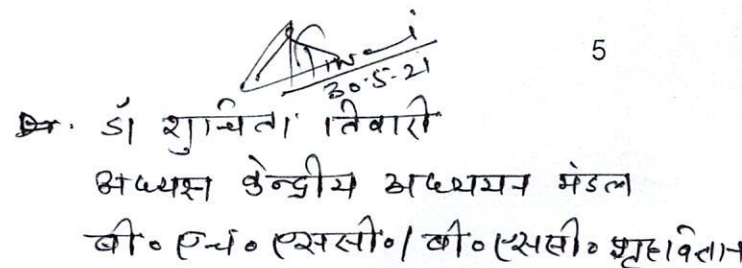 5
30-5-21
डॉ शुचिता तिवारी
अध्यक्ष केन्द्रीय अध्ययन मंडल
बी० एच० एससी० / बी० एससी० गृहविज्ञान